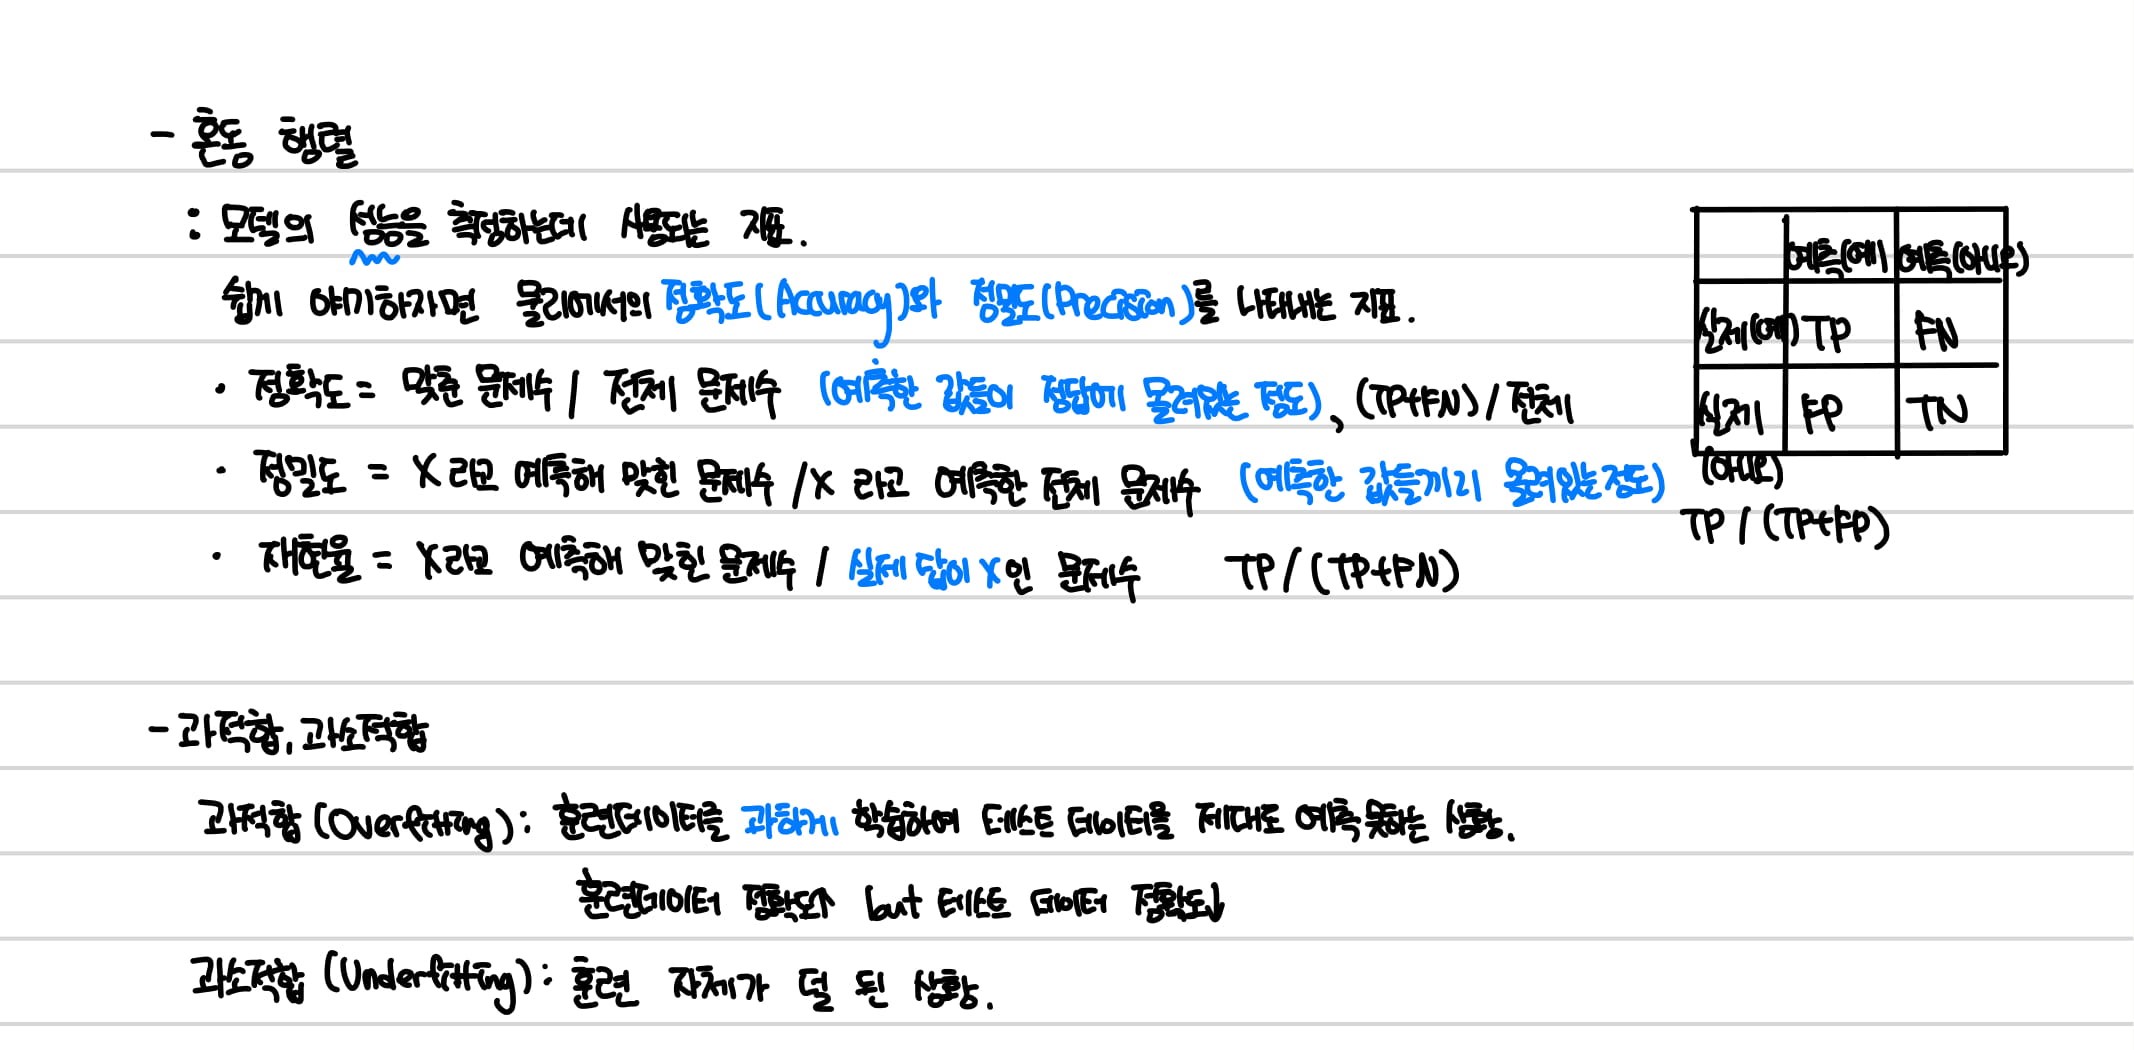 - 혼동 행렬
: 모델의 성능을 측정하는데 사용되는 지표.
쉽게 야기하자면 물리에서의 정확도(Accuracy)와 정밀도(Precision)를 나타내는 지표.
· 정확도 = 맞춘 문제수 / 전체 문제수 (예측한 값들이 정답에 몰려있는 정도), (TP+FN) / 전체
· 정밀도 = X 라고 예측해 맞힌 문제수 / X 라고 예측한 전체 문제수 (예측한 값들끼리 몰려있는정도)
TP / (TP+FP)
· 재현율 = X라고 예측해 맞힌 문제수 / 실제 답이 X인 문제수 TP / (TP+FN)
예측(예) 예측(아니오)
실제(예) TP FN
실제 FP TN
(아니오)
- 과적합, 과소적합
과적합 (Overfitting) : 훈련데이터를 과하게 학습하여 테스트 데이터를 제대로 예측 못하는 상황.
훈련데이터 정확도↑ but 테스트 데이터 정확도↓
과소적합 (Underfitting) : 훈련 자체가 덜 된 상황.